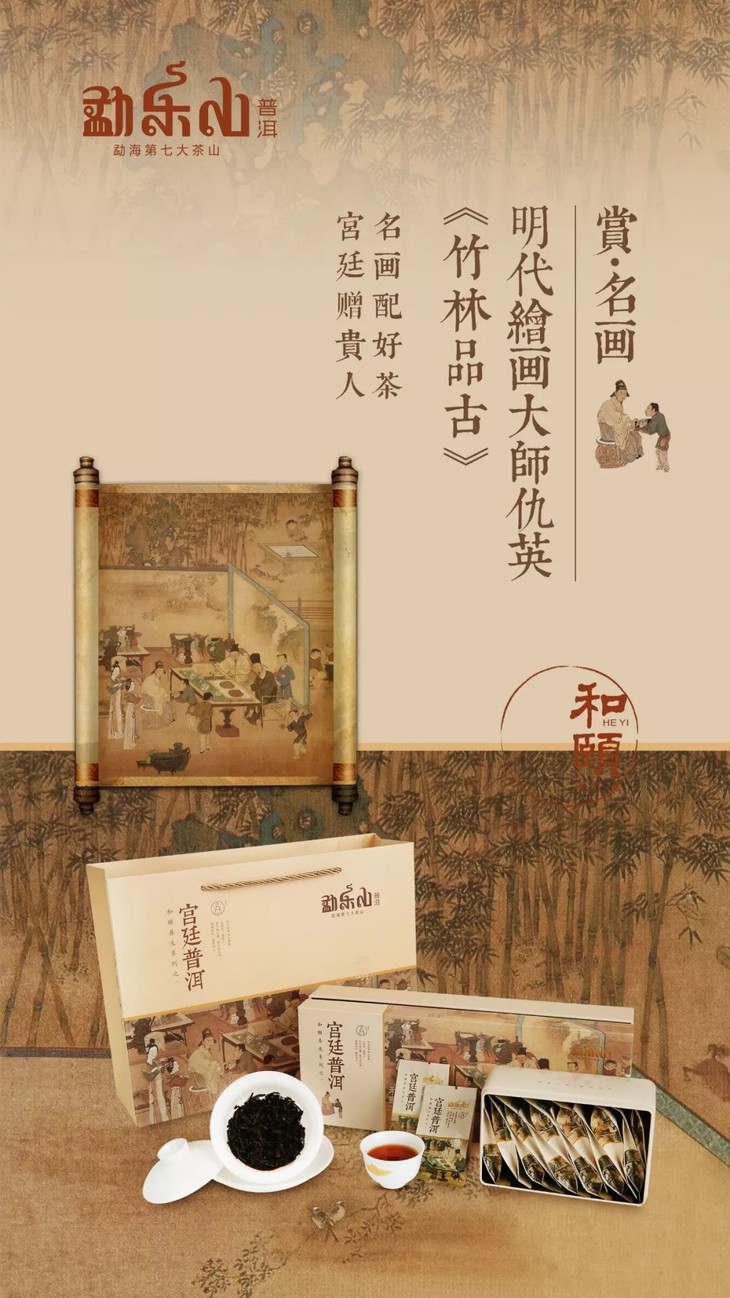 勐乐山
普洱
勐海第七大茶山
賞·名画
明代繪画大師仇英
《竹林品古》
名画配好茶
宮廷赠貴人
和頤
HE YI
勐乐山
普洱
勐海第七大茶山
宫廷普洱
和頤养生系列之一
宫廷普洱
宫廷普洱
宫廷普洱